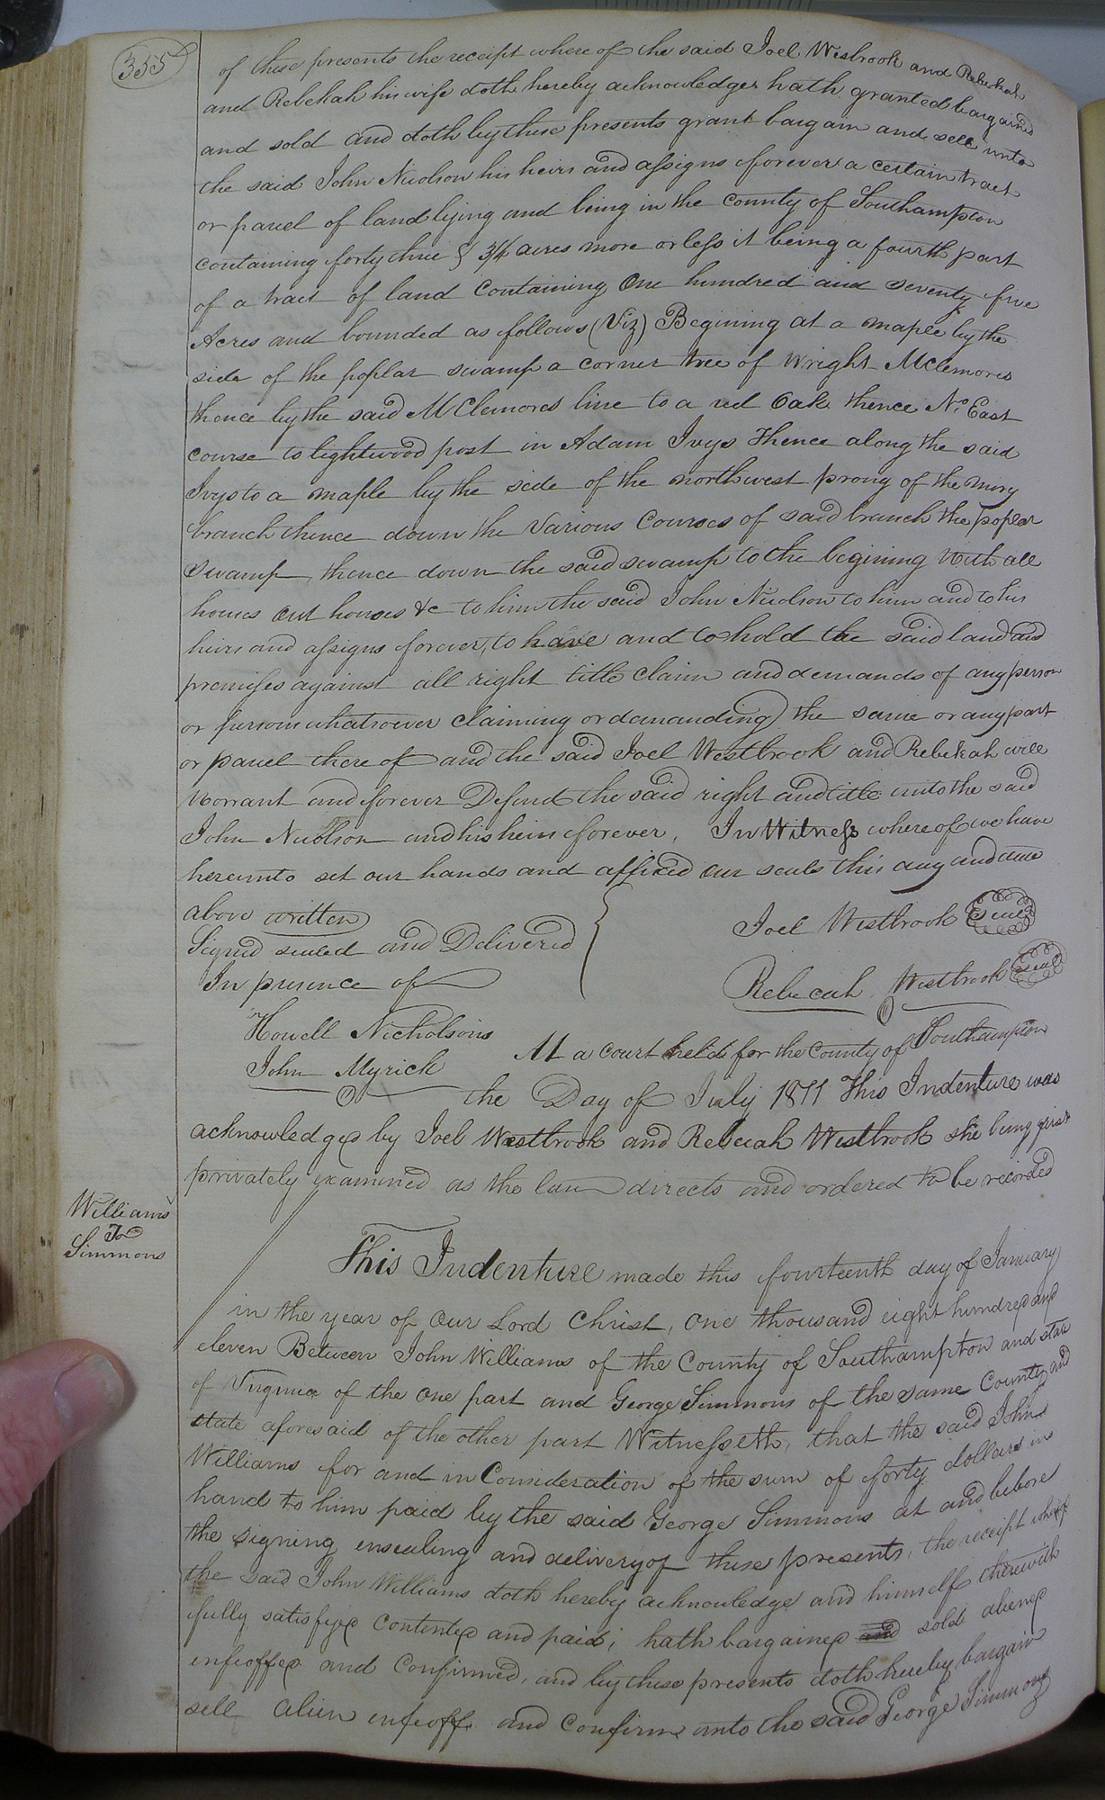 355
of these presents the receipt where of the said Joel Wesbrook and Rebekah
and Rebekah his wife doth hereby acknowledges hath granted bargained
and sold and doth by these presents grant bargain and sell unto
the said John Nicolson his heirs and assigns forever a certain tract
or parcel of land lying and being in the county of Southampton
containing forty three & 3/4 acres more or less it being a fourth part
of a tract of land containing One hundred and seventy five
Acres and bounded as follows (Viz) Begining at a maple by the
side of the poplar swamp a corner tree of Wright Mclemores
thence by the said McClemores line to a red Oak thence No. East
course to lightwood post in Adam Ivys Thence along the said
Ivys to a maple by the side of the northwest prong of the miry
branch thence down the various Courses of said branch the poplar
swamp thence down the said swamp to the begining with all
houses out houses &c to him the said John Nicolson to him and to his
heirs and assigns forever, to have and to hold the said land and
premises against all right title claim and demands of any person
or persons whatsoever claiming or demanding the same or any part
or parcel there of and the said Joel Westbrook and Rebekah will
Worrant and forever Defend the said right and title unto the said
John Nicolson and his heirs forever, In Witness where of we have
hereunto set our hands and affixed our seals this day and date
above written
Signed sealed and Delivered
In presence of
Joel Westbrook Seal
Rebecah Westbrook seal
Howell Nicholsons
John Myrick
At a court held for the county of Southampton
the Day of July 1811 This Indenture was
acknowledged by Joel Westbrook and Rebecah Westbrook she being first
privately examined as the law directs and ordered to be recorded
Williams
To
Simmons
This Indenture made this fourteenth day of January
in the year of Our Lord Christ, One thousand eight hundred and
eleven Between John Williams of the County of Southampton and state
of Virginia of the One part and George Simmons of the same County and
state aforesaid of the other part Witnesseth, that the said John
Williams for and in Consideration of the sum of forty dollars in
hand to him paid by the said George Simmons at and before
the signing ensealing and delivery of these presents, the receipt whereof
the said John Williams doth hereby acknowledge and himself therewith
fully satisfyed Contented and paid; hath bargained and sold aliened
enfeoffed and Confirmed, and by these presents doth hereby bargain
sell alien enfeoff and Confirm unto the said George Simmons